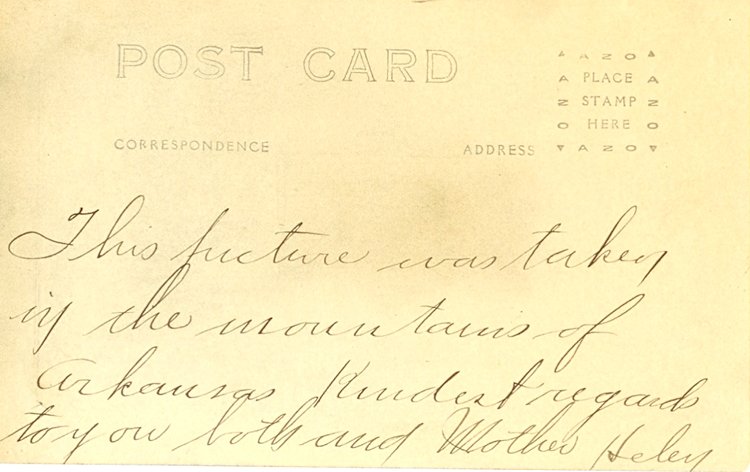 POST CARD
AZO
A PLACE A
Z STAMP Z
O HERE O
AZO
CORRESPONDENCE
ADDRESS
This picture was taken
in the mountains of
Arkansas Kindest regards
to you both and Mother Helen